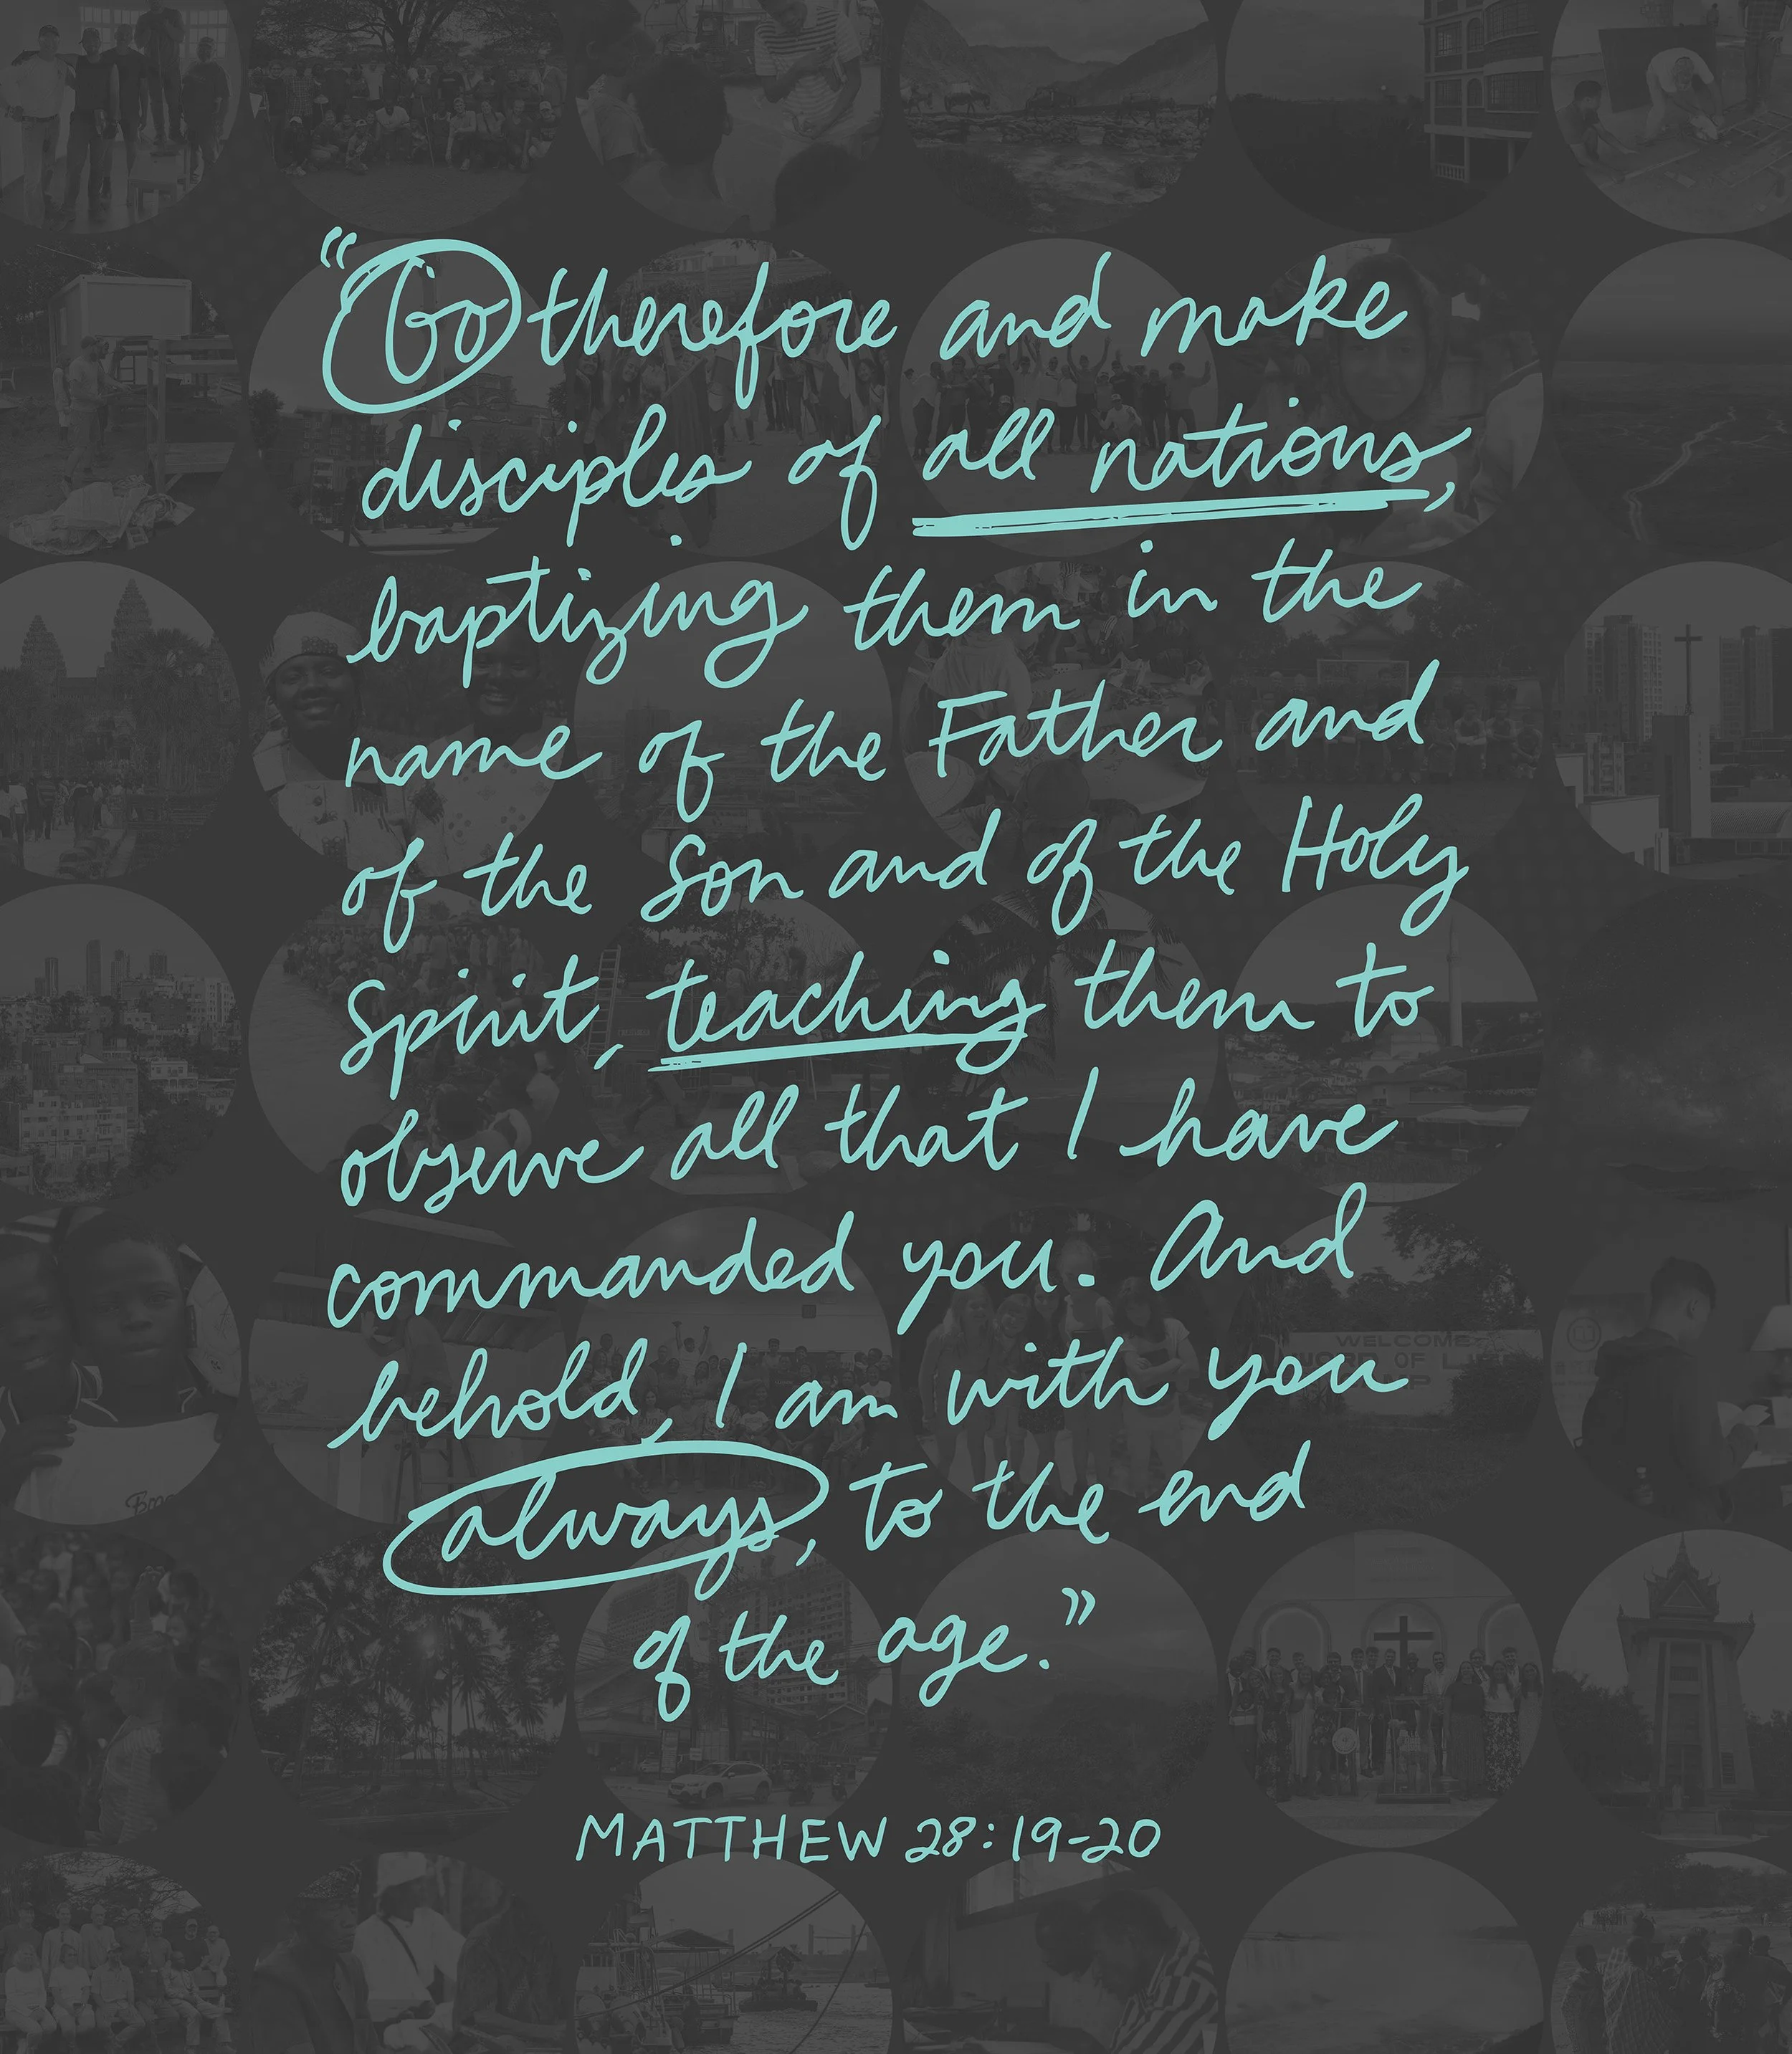 “Go therefore and make
disciples of all nations,
baptizing them in the
name of the Father and
of the Son and of the Holy
Spirit, teaching them to
observe all that I have
commanded you. And
behold, I am with you
always, to the end
of the age.”
MATTHEW 28:19-20
WELCOME
OF